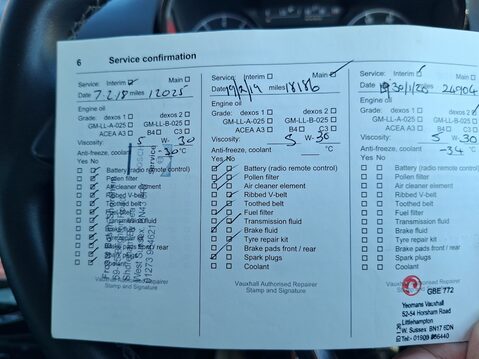 6 Service confirmation
Service: Interim Main
Date 7.2.18 miles 12025
Engine oil
Grade: dexos 1 dexos 2
GM-LL-A-025 GM-LL-B-025
ACEA A3 B4 C3
Viscosity: 5 W- 30
Anti-freeze, coolant -30 °C
Yes No
Battery (radio remote control)
Pollen filter
Air cleaner element
Ribbed V-belt
Toothed belt
Fuel filter
Transmission fluid
Brake fluid
Tyre repair kit
Brake pads front / rear
Spark plugs
Coolant
Vauxhall Authorised Repairer
Stamp and Signature
Service: Interim Main
Date 19/2/19 miles 18186
Engine oil
Grade: dexos 1 dexos 2
GM-LL-A-025 GM-LL-B-025
ACEA A3 B4 C3
Viscosity: 5 W- 30
Anti-freeze, coolant °C
Yes No
Battery (radio remote control)
Pollen filter
Air cleaner element
Ribbed V-belt
Toothed belt
Fuel filter
Transmission fluid
Brake fluid
Tyre repair kit
Brake pads front / rear
Spark plugs
Coolant
Vauxhall Authorised Repairer
Stamp and Signature
Service: Interim Main
Date 30/1/20 miles 24904
Engine oil
Grade: dexos 1 dexos 2
GM-LL-A-025 GM-LL-B-025
ACEA A3 B4 C3
Viscosity: 5 W- 30
Anti-freeze, coolant -34 °C
Yes No
Battery (radio remote control)
Pollen filter
Air cleaner element
Ribbed V-belt
Toothed belt
Fuel filter
Transmission fluid
Brake fluid
Tyre repair kit
Brake pads front / rear
Spark plugs
Coolant
GBE 772
Yeomans Vauxhall
52-54 Horsham Road
Littlehampton
W. Sussex BN17 6DN